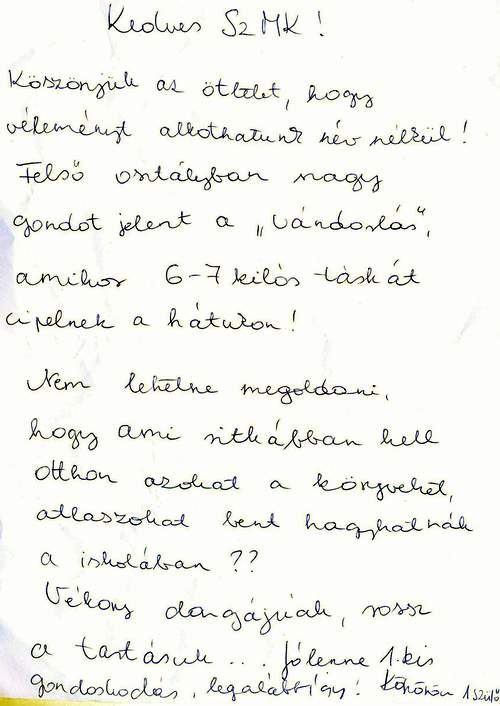 Kedves SzMK!
Köszönjük az ötletet, hogy
véleményt alkothatunk név nélkül!
Felső osztályban nagy
gondot jelent a „Vándorlás",
amikor 6-7 kilós táskát
cipelnek a hátukon!
Nem lehetne megoldani,
hogy ami ritkábban kell
otthon azokat a könyveket,
atlaszokat bent hagyhatnák
a iskolában ??
Vékony dongájúak, rossz
a tartásuk ... Jólenne 1.kis
gondoskodás, legalább így! Köszönöm 1 szülő